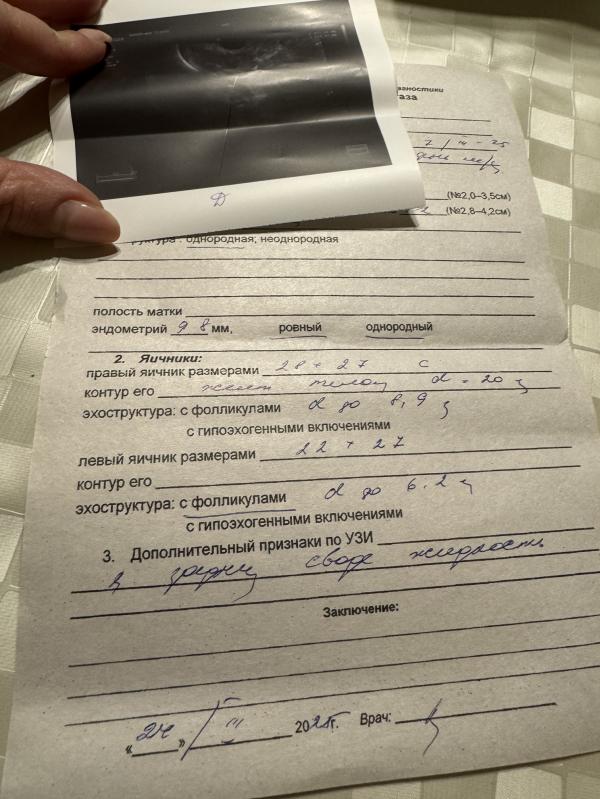 Д
7 / III - 25
(№2,0–3,5см)
2 (№2,8–4,2см)
однородная; неоднородная
полость матки
эндометрий 9 8 мм, ровный однородный
2. Яичники:
правый яичник размерами 28 + 27 с
контур его желт телом d = 20
эхоструктура: с фолликулами d до 8,9
с гипоэхогенными включениями
левый яичник размерами 22 + 27
контур его
эхоструктура: с фолликулами d до 6.2
с гипоэхогенными включениями
3. Дополнительный признаки по УЗИ
в своде жидкость
Заключение:
«24» III 2025г. Врач: